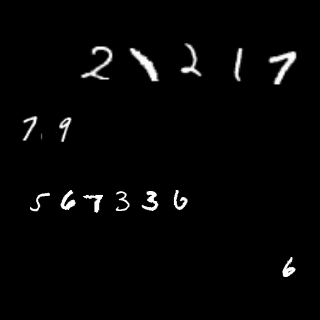 21217
79
567336
6